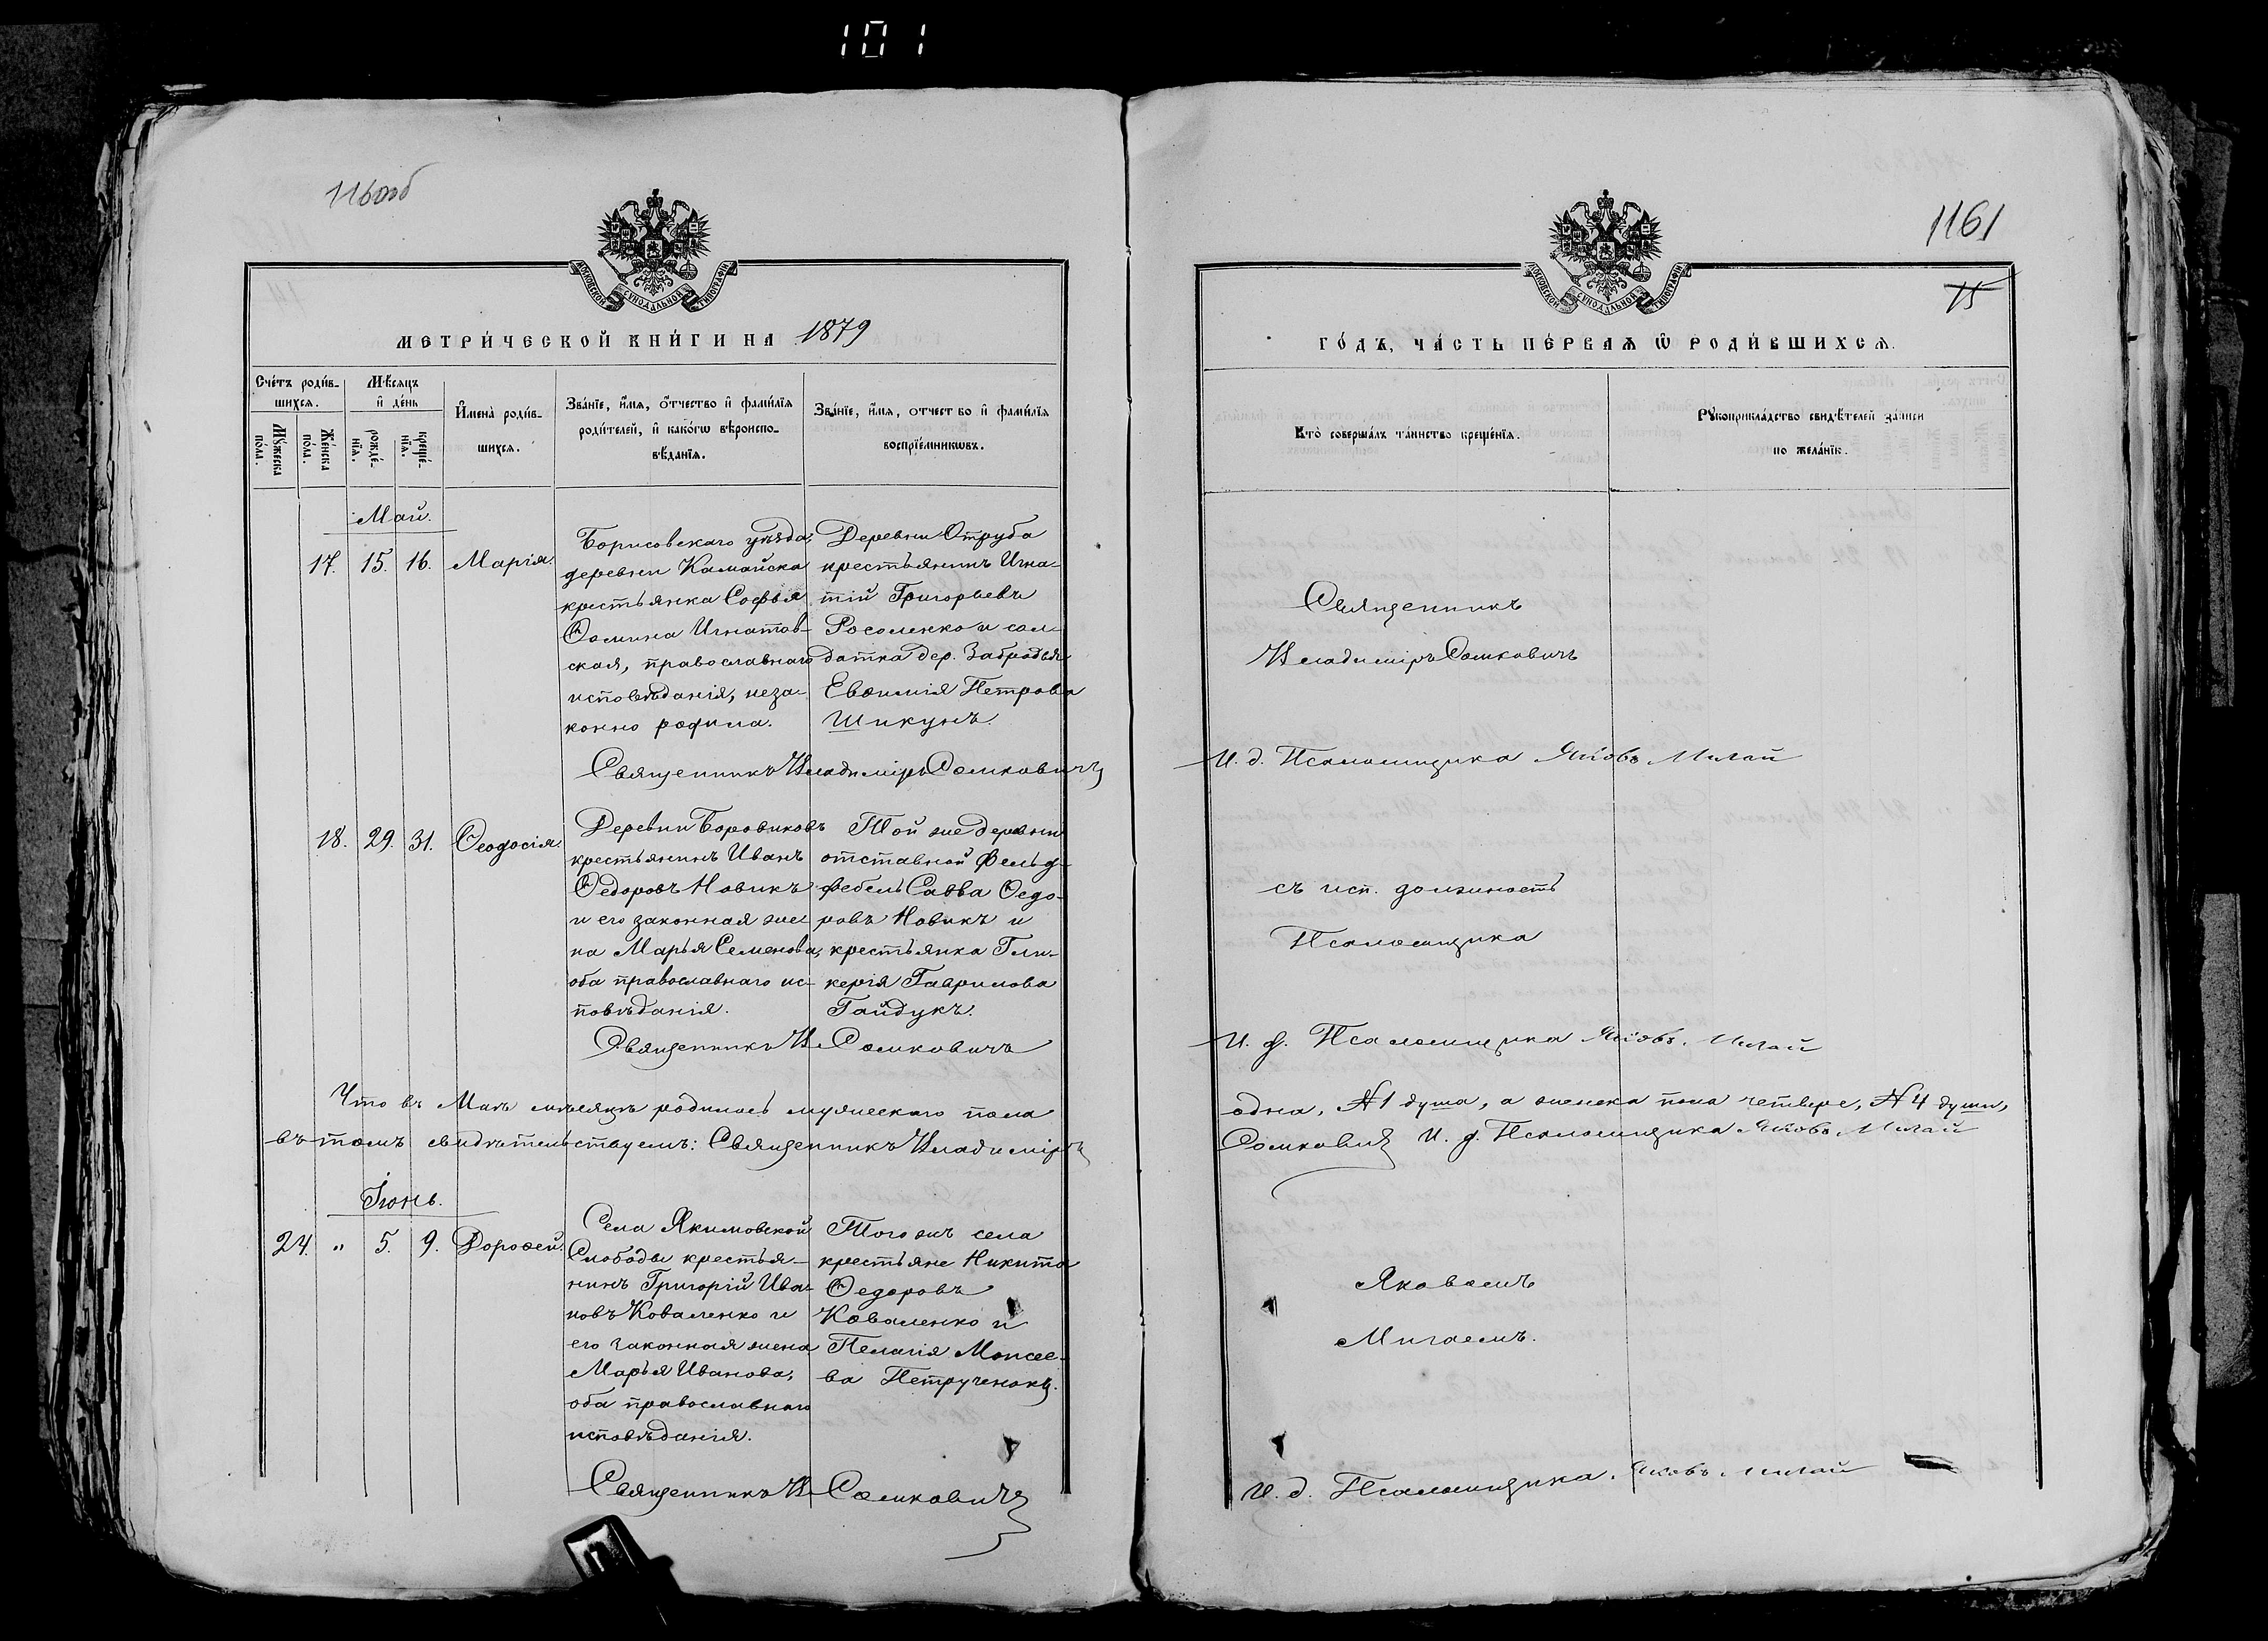 101
1160об
МОСКОВСКОЙ СУНОДАЛЬНОЙ ТИПОГРАФІИ
МЕТРИ́ЧЕСКОЙ КНИ́ГИ НА 1879
Сче́тъ роди́в-
шихсѧ.
Мꙋ́жеска
по́ла.
Же́нска
по́ла.
Мѣ́сѧцъ
и҆ де́нь
рожде́-
нїѧ.
креще́-
нїѧ.
И҆мена̀ роди́в-
шихсѧ.
Зва́нїе, и҆́мѧ, ѻ҆́тчество и҆ фами́лїѧ
роди́телей, и҆ како́гѡ вѣроиспо-
вѣ́данїѧ.
Зва́нїе, и҆́мѧ, отчество и҆ фами́лїѧ
воспрїе́мникѡвъ.
Май.
17. 15. 16. Марія.
Борисовскаго уѣзда,
деревни Камайска
крестьянка Софья
Ѳомина Игнатов-
ская, православнаго
исповѣданія, неза-
конно родила.
Деревни Отруба
крестьянинъ Игна-
тій Григорьевъ
Росоленко и сол-
датка дер. Забродья
Евѳимія Петрова
Шикунъ.
Священникъ Владиміръ Сомковичъ
18. 29. 31. Ѳеодосія.
Деревни Боровиковъ
крестьянинъ Иванъ
Ѳедоровъ Новикъ
и его законная же-
на Марья Семенова,
оба православнаго ис-
повѣданія.
Той же деревни
отставной фельд-
фебель Савва Ѳедо-
ровъ Новикъ и
крестьянка Гли-
керія Гаврилова
Гайдукъ.
Священникъ В. Сомковичъ
Что въ Маѣ мѣсяцѣ родилось мужескаго пола
въ томъ свидѣтельствуемъ: Священникъ Владиміръ
Іюнь.
24. " 5. 9. Дороѳей.
Села Якимовской
Слободы крестья-
нинъ Григорій Ива-
новъ Коваленко и
его законная жена
Марья Иванова,
оба православнаго
исповѣданія.
Того жъ села
крестьяне Никита
Ѳедоровъ
Коваленко и
Пелагія Моисее-
ва Петрученокъ.
Священникъ В. Сомковичъ
1161
15
МОСКОВСКОЙ СУНОДАЛЬНОЙ ТИПОГРАФІИ
ГО́ДЪ, ЧА́СТЬ ПЕ́РВАѦ Ѽ РОДИ́ВШИХСѦ.
Кто̀ соверша́лъ та́инство креще́нїѧ.
Рꙋкоприкла́дство свидѣ́телей за́писи
по жела́нїю.
Священникъ
Владиміръ Сомковичъ
И. д. Псаломщика Яковъ Мигай
съ исп. должность
Псаломщика
И. д. Псаломщика Яковъ Мигай
одна, №1 душа, а женска пола четверо, №4 души,
Сомковичъ И. д. Псаломщика Яковъ Мигай
Яковомъ
Мигаемъ.
И. д. Псаломщика Яковъ Мигай